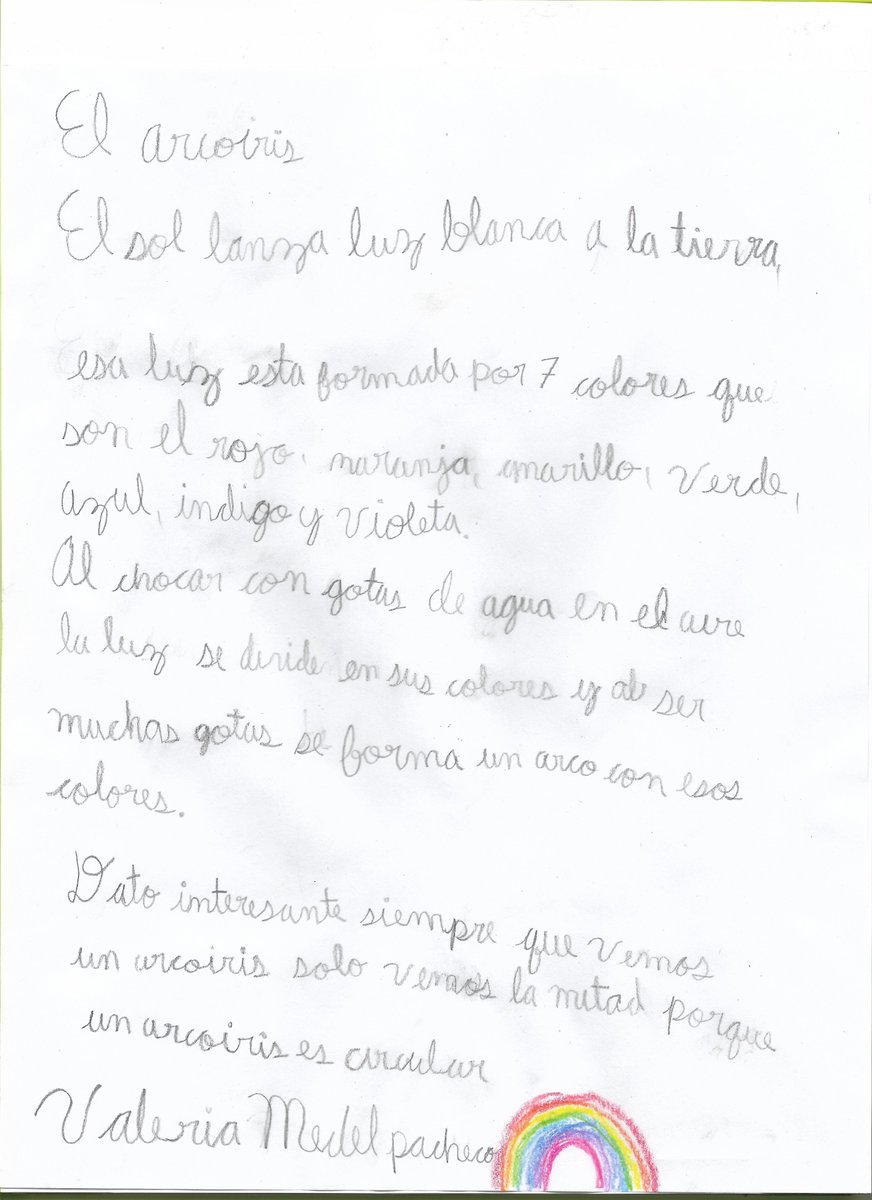 El arcoiris
El sol lanza luz blanca a la tierra,
esa luz esta formada por 7 colores que
son el rojo, naranja, amarillo, verde,
azul, indigo y violeta.
Al chocar con gotas de agua en el aire
la luz se divide en sus colores y al ser
muchas gotas se forma un arco con esos
colores.
Dato interesante siempre que vemos
un arcoiris solo vemos la mitad porque
un arcoiris es circular
Valeria Medel pacheco